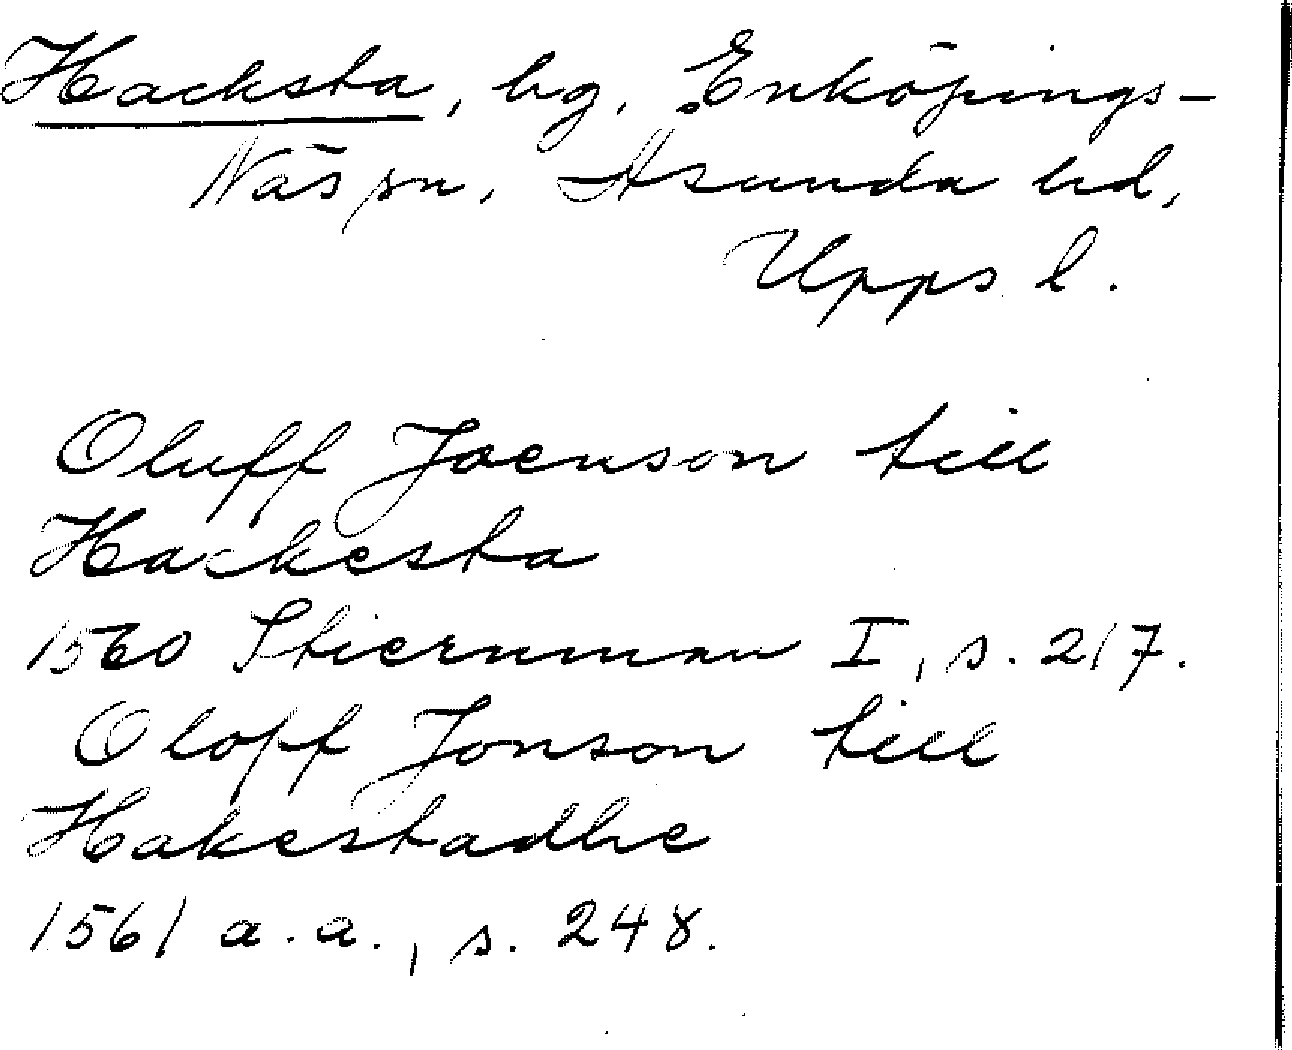 Hacksta, hg. Enköpings-
Näs sn. Åsunda hd,
Upps l.
Oluff Joenson till
Hackesta
1560 Stiernman I, s. 217.
Oloff Jonson till
Hakestadhe
1561 a.a., s. 248.